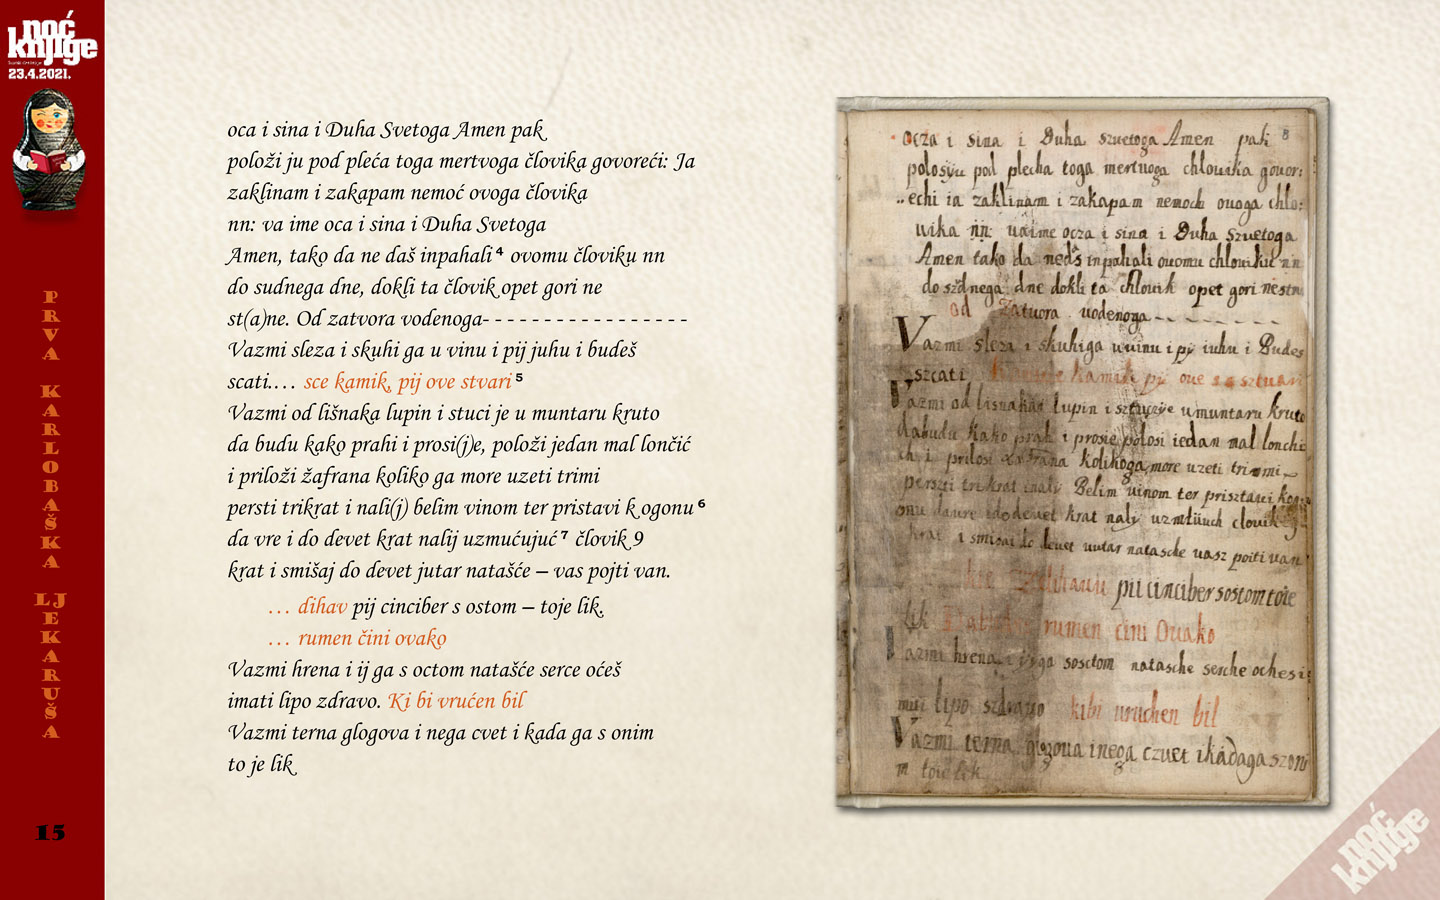 noć
knjige
23.4.2021.
PRVA KARLOBAŠKA LJEKARUŠA
15
oca i sina i Duha Svetoga Amen pak
položi ju pod pleća toga mertvoga človika govoreći: Ja
zaklinam i zakapam nemoć ovoga človika
nn: va ime oca i sina i Duha Svetoga
Amen, tako da ne daš inpahali⁴ ovomu človiku nn
do sudnega dne, dokli ta človik opet gori ne
st(a)ne. Od zatvora vodenoga- - - - - - - - - - - - - - - - -
Vazmi sleza i skuhi ga u vinu i pij juhu i budeš
scati.… sce kamik, pij ove stvari⁵
Vazmi od lišnaka lupin i stuci je u muntaru kruto
da budu kako prahi i prosi(j)e, položi jedan mal lončić
i priloži žafrana koliko ga more uzeti trimi
persti trikrat i nali(j) belim vinom ter pristavi k ogonu⁶
da vre i do devet krat nalij uzmućujuć⁷ človik 9
krat i smišaj do devet jutar natašće – vas pojti van.
… dihav pij cinciber s ostom – toje lik.
… rumen čini ovako
Vazmi hrena i ij ga s octom natašće serce oćeš
imati lipo zdravo. Ki bi vrućen bil
Vazmi terna glogova i nega cvet i kada ga s onim
to je lik
ocza i sina i Duha szuetoga Amen pak
polosyu pod plecha toga mertuoga chlouika gouor:
echi ia zaklinam i zakapam nemoch ouoga chlo:
uika nn: uaime ocza i sina i Duha Szuetoga
Amen tako da neds inpahali ouomu chlouiku nn
do szdnega dne dokli ta chlouik opet gori nestn
od Zatuora uodenoga - - - - - - -
Vazmi sleza i skuhiga uuinu i py iuhu i Budes
szcati kamik py oue sztuari
Vazmi od lisnaka lupin i umuntaru kruto
dabudu kako prah i prosie polosi iedan mal lonchi
ch i prilosi kolikoga more uzeti trimi
perszti trikrat inaly Belim uinom ter prisztaui
onu daure idodeuet krat naly clouik 9
krat i smisai do deuet iutar natasche uasz poiti uan
pii cinciber sostom toie
lik rumen cini Ouako
Vazmi hrena i ga sosctom natasche serche oches i
mati lipo szdrauo kibi uruchen bil
Vazmi terna glogoua inega czuet ikadaga szoni
m toie lik
noć
knjige